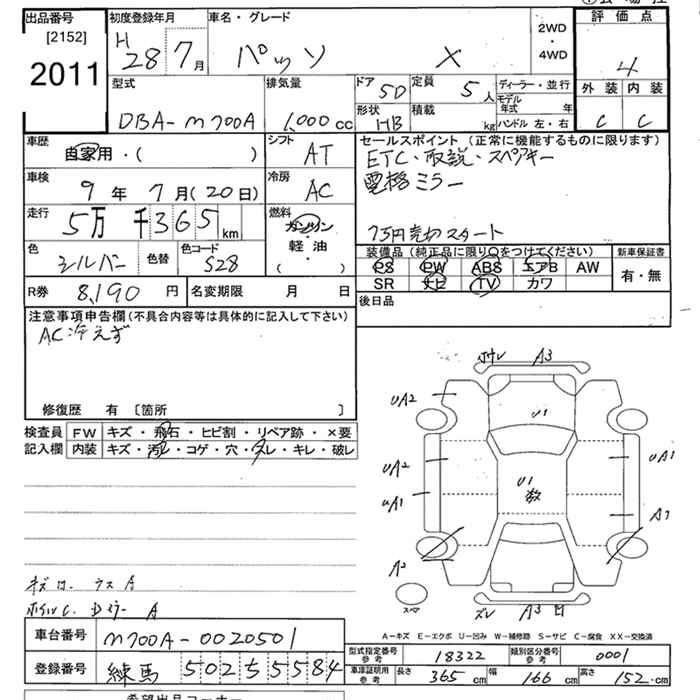 出品番号 初度登録年月 車名・グレード 評価点
[2152] 2011
H 28年 7月 パッソ X 2WD・4WD 4
型式 DBA-M700A 排気量 1,000cc ドア 5D 定員 5人 ディーラー・並行 外装 内装
形状 HB 積載 kg モデル年式 年 ハンドル 左・右 C C
車歴 自家用・( ) シフト AT セールスポイント (正常に機能するものに限ります)
車検 9年 7月(20日) 冷房 AC ETC・取説・スペアキー
電格ミラー
走行 5万 千365km 燃料 ガソリン・軽油・( ) 7万円売切スタート
色 シルバー 色替 色コード S28 装備品 (純正品に限り〇をつけてください) 新車保証書
PS PW ABS エアB AW 有・無
R券 8,190円 名変期限 月 日 SR ナビ TV カワ
注意事項申告欄(不具合内容等は具体的に記入して下さい) 後日品
AC冷えず
修復歴 有 〔箇所 〕
検査員 FW キズ・飛石・ヒビ割・リペア跡・×要
記入欄 内装 キズ・汚レ・コゲ・穴・スレ・キレ・破レ
A3
UA2 U1
UA2 U1 数 UA1
UA1 A1
A2
スペア ズレ A3
A-キズ E-エクボ U-凹み W-補修跡 S-サビ C-腐食 XX-交換済
ホイルC ドミラー A
車台番号 M700A-0020501 型式指定番号 参考 18322 類別区分番号 参考 0001
登録番号 練馬 502 5 5584 車庫証明用 参考 長さ 365cm 幅 166cm 高さ 152cm
希望出品コーナー